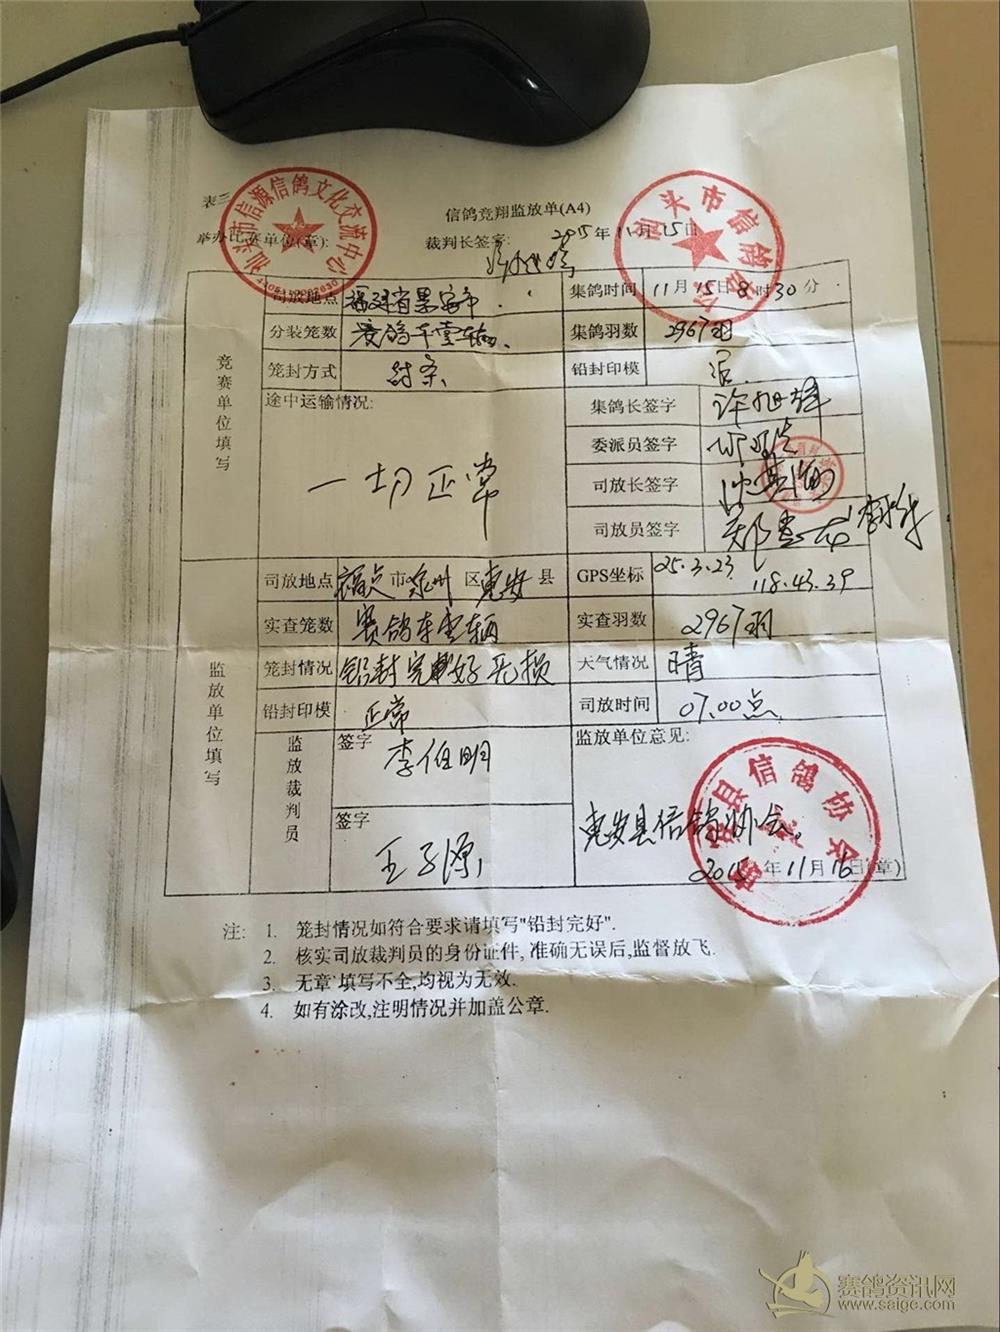 表三
汕头市信源信鸽文化交流中心
信鸽竞翔监放单(A4)
汕头市信鸽协会
举办比赛单位(章):
裁判长签字:
2015年11月15日
竞赛单位填写
司放地点 福建省惠安市
集鸽时间 11月15日8时30分
分装笼数
集鸽羽数 2967羽
笼封方式 封条
铅封印模
途中运输情况:
一切正常
集鸽长签字 许旭辉
委派员签字
司放长签字
司放员签字
监放单位填写
司放地点 福建市泉州区惠安县
GPS坐标 25.3.23 118.43.39
实查笼数 赛鸽车壹辆
实查羽数 2967羽
笼封情况 铅封完好无损
天气情况 晴
铅封印模 正常
司放时间 07.00点
监放裁判员
签字 李伯明
签字 王子源
监放单位意见:
惠安县信鸽协会
惠安县信鸽协会。
2015年11月16日(章)
注: 1. 笼封情况如符合要求请填写"铅封完好".
2. 核实司放裁判员的身份证件, 准确无误后,监督放飞.
3. 无章`填写不全,均视为无效.
4. 如有涂改,注明情况并加盖公章.
赛鸽资讯网
www.saige.com